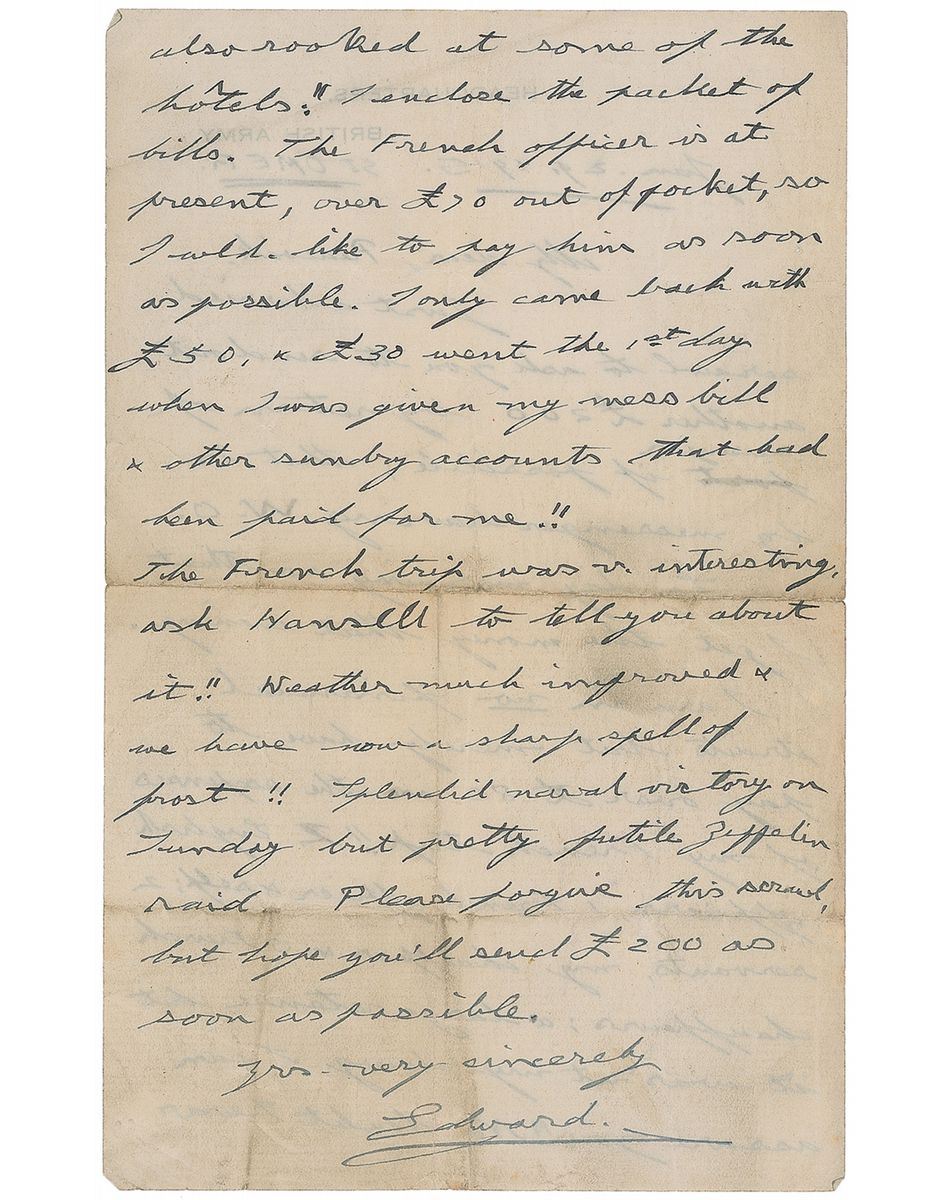 also rooked at some of the
hôtels." I enclose the packet of
bills. The French officer is at
present, over £70 out of pocket, so
I wld. like to pay him as soon
as possible. I only came back with
£50, & £30 went the 1st day
when I was given my mess bill
& other sundry accounts that had
been paid for me!!
The French trip was v. interesting,
ask Hansell to tell you about
it!! Weather much improved &
we have now a sharp spell of
frost!! Splendid naval victory on
Sunday but pretty futile Zeppelin
raid. Please forgive this scrawl,
but hope you'll send £200 as
soon as possible.
Yrs. very sincerely
Edward.